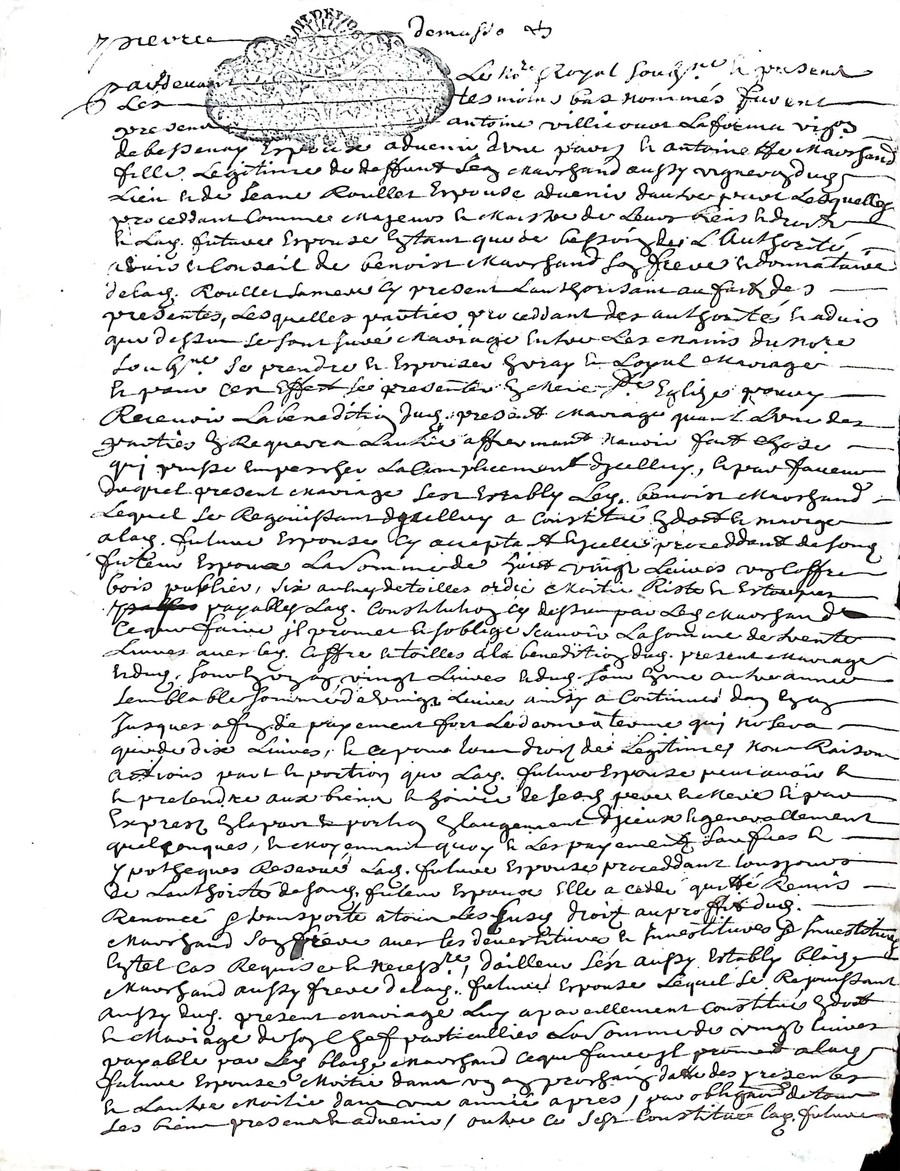 pierre demasso
pardevant Le no.re Royal soubg.né En presence
des tesmoins bas nommés furent
present antoine villecourt Laforma vig.on
de bessenay Espoux advenir dune part, Et antoinette Marchand
fille Legitime de deffunt Marchand aussy vigneron dud.
Lieu et de Jeane Roullet Espouse advenir dautre part Lesquelles
proceddant Comme Majeurs et Maistre de Leurs biens et droits
Et Lad. future Espouse Estant que de besoin de L'Authorité
advis et Conseil de benoist Marchand son frere et donnataire
de lad. Roullet sa mere Cy present Lauthorisant au fait des
presentes, Lesquelles parties proceddant des authorité et advis
que dessus se sont juré Mariage Entre Les Mains du no.re
soubg.né se prendre et Espouser En vray et Loyal Mariage
Et pour cet Effet se presenter En mere S.te Eglise pour y
Recevoir La benediction dud. present Mariage quant Lune des
parties En Requerra Lautre affirmant navoir fait chose
qui puisse Empescher Lacomplicement dicelluy, Et par faveur
duquel present Mariage sest Estably Led. benoist Marchand
Lequel se Rejouissant dicelluy a Constitué En dot Et mariage
a lad. future Espouse Cy acceptant Et icelle proceddant de son d.
futur Espoux La somme de huit vingt Livres un Coffre
bois publier, six aulnes de toilles ordie Moitié Riste et Estoupes
payables Lad. Constitution Cy dessus par Led. Marchand
Ce que faire il promet et soblige scavoir La somme de trente
Livres avec led. Coffre et toilles a la benediction dud. present Mariage
Et dud. jour En un an vingt Livres Et dud. jour En une autre année
semblable somme de vingt Livres ainsy a Continuer dan En an
Jusques a fin de payement fors Le dernier terme qui ne sera
que de dix Livres, Et ce pour tous droits de Legitimes noms Raisons
actions part et portion que Lad. future Espouse peut avoir Et
Et pretendre aux biens et hoirie de sesd. pere et Mere Et par
Exprest En la part Et portion En laugement diceux Et generallement
quelconques, Et Moyennant quoy Et Les payements sauf ses
ypotheques Reservé Lad. future Espouse proceddant tousjours
de Lauthorité de son d. futur Espoux Elle a ceddé quitté Remis
Renoncé Et transporté a tous Les susd. droits au proffit dud.
Marchand son frere avec les devestitures Et Investitures
En tel cas Requise et necess.re, dailleurs sest aussy Estably blaise
Marchand aussy frere de lad. future Espouse Lequel se Rejouissant
aussy dud. present Mariage Luy a pareillement Constitué En dot
Et Mariage de son Chef particullier La somme de vingt Livres
payable par Led. blaise Marchand ce que faire il promet a lad.
future Espouse Moitié dans un an prochain datte des presentes
Et Lautre Moitié dans une année apres, par obligation de tous
ses biens presents et advenir, outre ce sest Constituée Lad. future